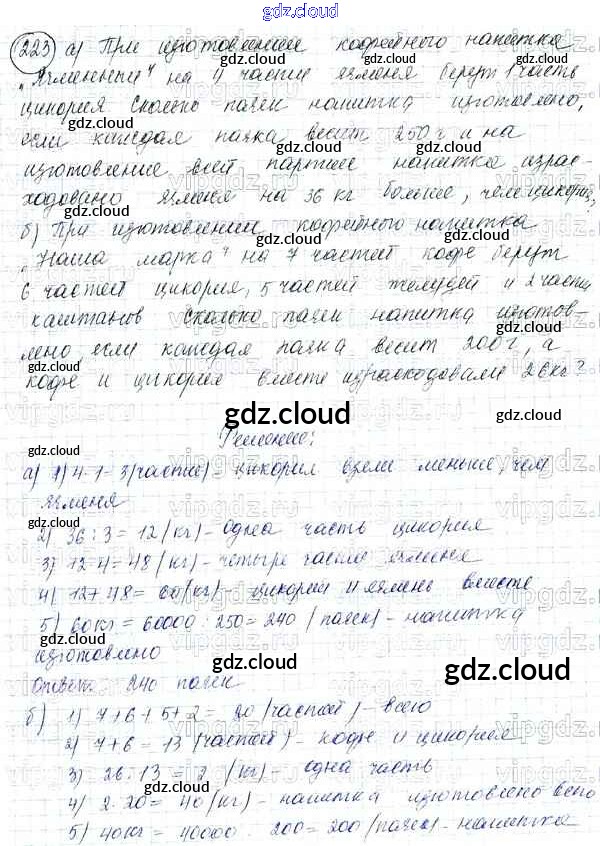 gdz.cloud
223 а) При изготовлении кофейного напитка
„Ячменный" на 4 части ячменя берут 1 часть
цикория Сколько пачек напитка изготовлено,
если каждая пачка весит 250 г и на
изготовление всей партии напитка израс-
ходовано ячменя на 36 кг больше, чем цикория?
б) При изготовлении кофейного напитка
„Наша марка" на 7 частей кофе берут
6 частей цикория, 5 частей желудей и 2 части
каштанов Сколько пачек напитка изготов-
лено, если каждая пачка весит 200 г, а
кофе и цикория вместе израсходовали 26 кг?
gdz.cloud
Решение:
а) 1) 4-1=3 (части) - цикория взяли меньше, чем
ячменя
2) 36:3=12 (кг) - одна часть цикория
3) 12·4=48 (кг) - четыре части ячменя
4) 12+48=60 (кг) - цикорий и ячмень вместе
5) 60 кг = 60000 : 250 = 240 (пачек) - напитка
изготовлено
Ответ: 240 пачек
б) 1) 7+6+5+2= 20 (частей) - всего
2) 7+6=13 (частей) - кофе и цикория
3) 26:13=2 (кг) - одна часть
4) 2·20=40 (кг) - напитка изготовлено всего
5) 40кг = 40000 : 200=200 (пачек) - напитка